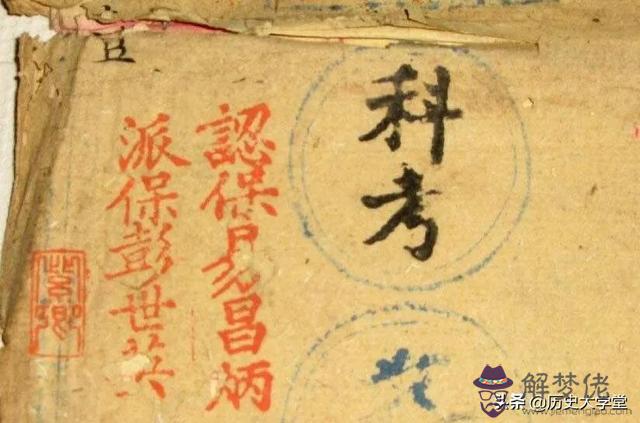 科考
認保易昌炳
派保彭世英
解梦佬
头条 @历史大学堂